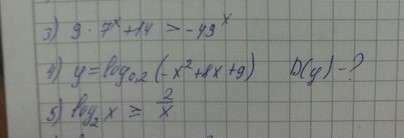 3) 9 · 7^x + 14 > -49^x
4) y = log_{0,2} (-x² + 8x + 9) D(y) - ?
5) log_2 x ≥ 2/x